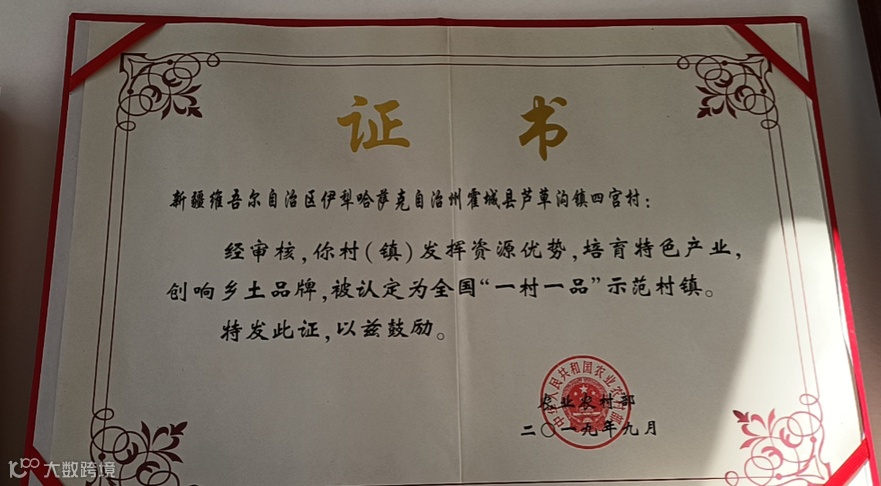 证 书
新疆维吾尔自治区伊犁哈萨克自治州霍城县芦草沟镇四宫村：
经审核，你村（镇）发挥资源优势，培育特色产业，
创响乡土品牌，被认定为全国“一村一品”示范村镇。
特发此证，以兹鼓励。
中华人民共和国农业农村部
农业农村部
二〇一九年九月
大数跨境